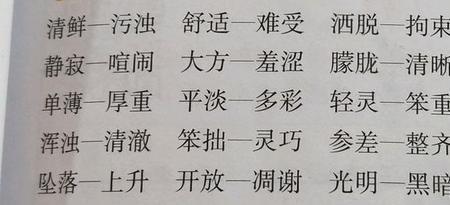 清鲜—污浊 舒适—难受 洒脱—拘束
静寂—喧闹 大方—羞涩 朦胧—清晰
单薄—厚重 平淡—多彩 轻灵—笨重
浑浊—清澈 笨拙—灵巧 参差—整齐
坠落—上升 开放—凋谢 光明—黑暗